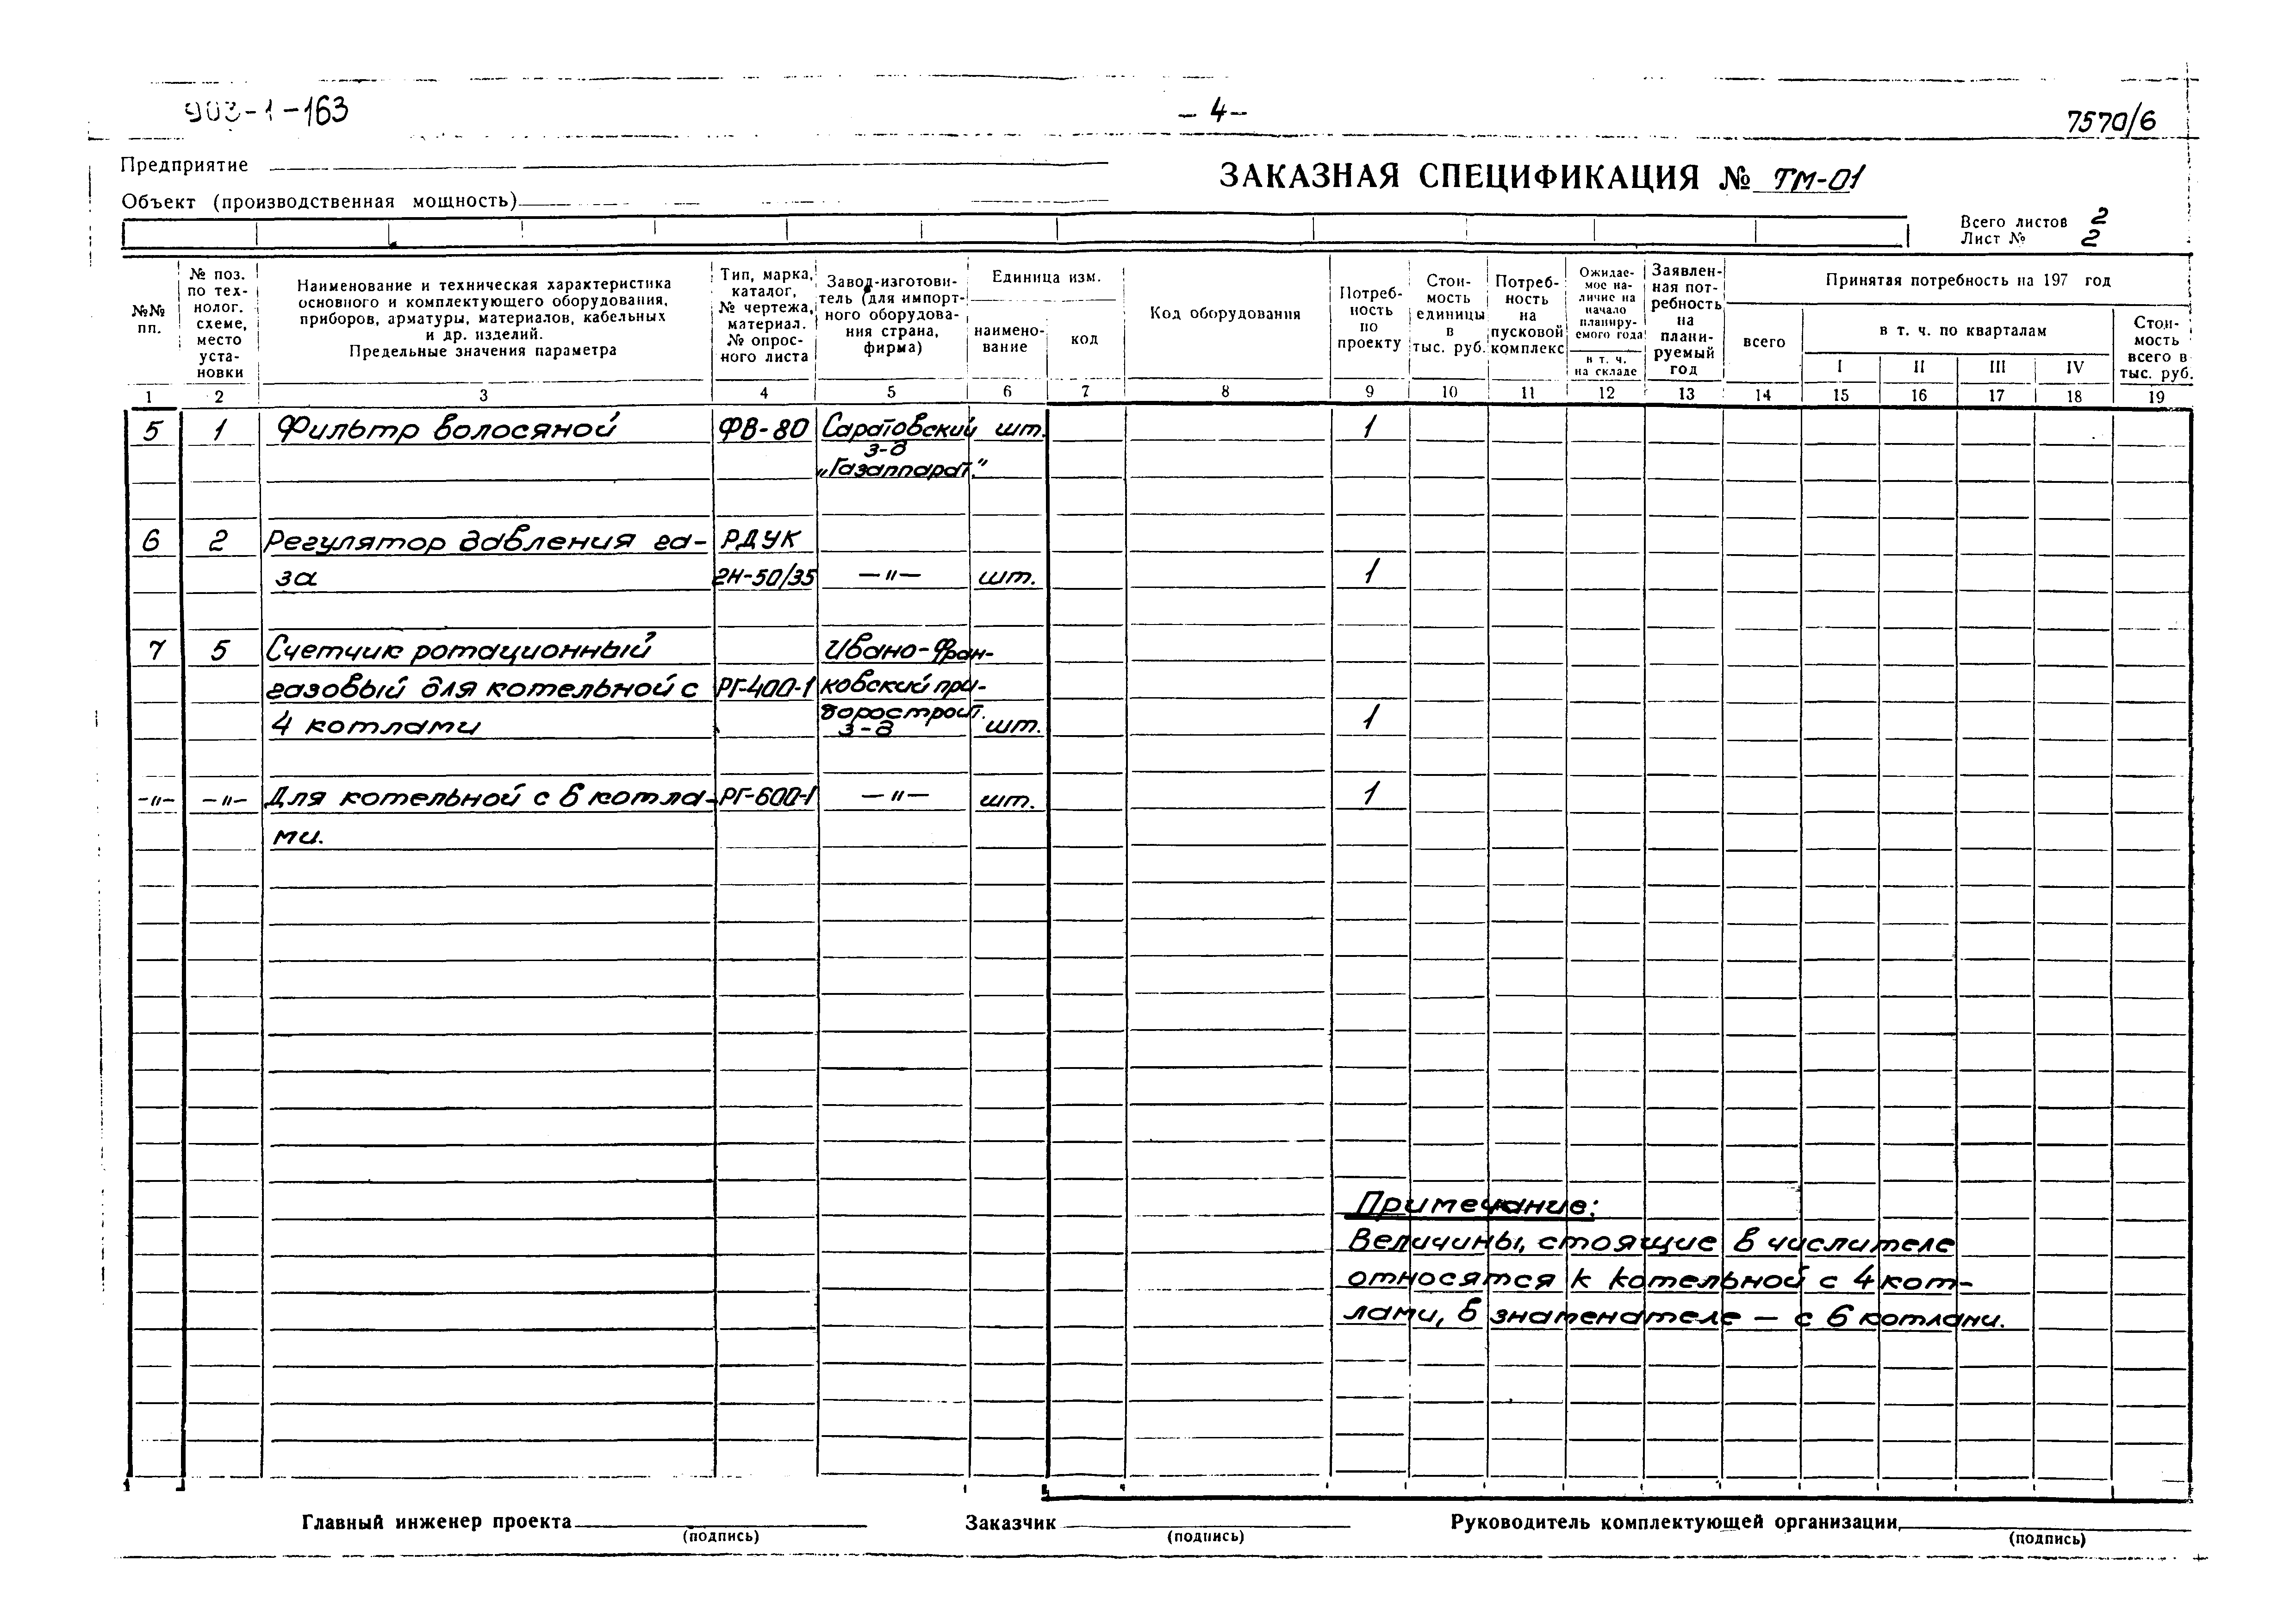 903-1-163
- 4 -
7570/6
Предприятие
ЗАКАЗНАЯ СПЕЦИФИКАЦИЯ № ТМ-01
Объект (производственная мощность)
Всего листов 2
Лист № 2
№№
пп.
№ поз.
по тех-
нолог.
схеме,
место
уста-
новки
Наименование и техническая характеристика
основного и комплектующего оборудования,
приборов, арматуры, материалов, кабельных
и др. изделий.
Предельные значения параметра
Тип, марка,
каталог,
№ чертежа,
материал.
№ опрос-
ного листа
Завод-изготови-
тель (для импорт-
ного оборудова-
ния страна,
фирма)
Единица изм.
наимено-
вание
код
Код оборудования
Потреб-
ность
по
проекту
Стои-
мость
единицы
в
тыс. руб.
Потреб-
ность
на
пусковой
комплекс
Ожидае-
мое на-
личие на
начало
планиру-
емого года
в т. ч.
на складе
Заявлен-
ная пот-
ребность
на
плани-
руемый
год
Принятая потребность на 197 год
всего
в т. ч. по кварталам
I II III IV
Стои-
мость
всего в
тыс. руб.
1 2 3 4 5 6 7 8 9 10 11 12 13 14 15 16 17 18 19
5 1 Фильтр волосяной ФВ-80 Саратовский шт. 1
з-д
„Газаппарат."
6 2 Регулятор давления га- РДУК
за 2Н-50/35 —"— шт. 1
7 5 Счетчик ротационный Ивано-Фран-
газовый для котельной с РГ-400-1 ковский при-
4 котлами боростроит. шт. 1
з-д
—"— —"— Для котельной с 6 котла- РГ-600-1 —"— шт. 1
ми.
Примечание:
Величины, стоящие в числителе
относятся к котельной с 4 кот-
лами, в знатенателе — с 6 котлами.
Главный инженер проекта
(подпись)
Заказчик
(подпись)
Руководитель комплектующей организации,
(подпись)